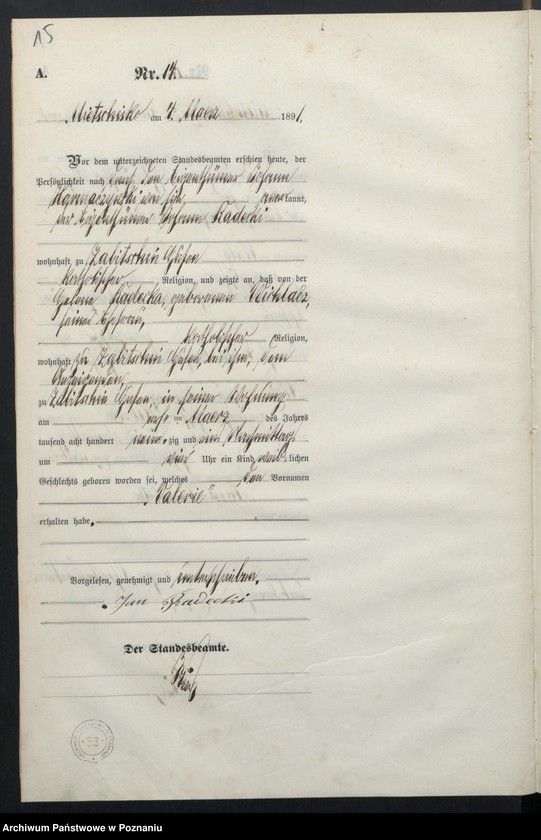 15
A.
Nr. 14.
Mietschisko am 4. Maerz 1891.
Vor dem unterzeichneten Standesbeamten erschien heute, der
Persönlichkeit nach durch den Eigenthümer Johann
kannt,
der Eigenthümer Johann Radecki
wohnhaft zu Zabitschin Hufen
katholischer Religion, und zeigte an, daß von der
Helena Radecka, geborenen
seiner Ehefrau,
katholischer Religion,
wohnhaft zu Zabitschin Hufen, bei ihm, dem
Anzeigenden,
zu Zabitschin Hufen, in seiner Wohnung
am ten Maerz des Jahrs
tausend acht hundert neun zig und ein Nachmittag
um Uhr ein Kind weib lichen
Geschlechts geboren worden sei, welches den Vornamen
„Valerie"
erhalten habe.
Vorgelesen, genehmigt und unterschrieben.
Jan Radecki
Der Standesbeamte.
53
Archiwum Państwowe w Poznaniu